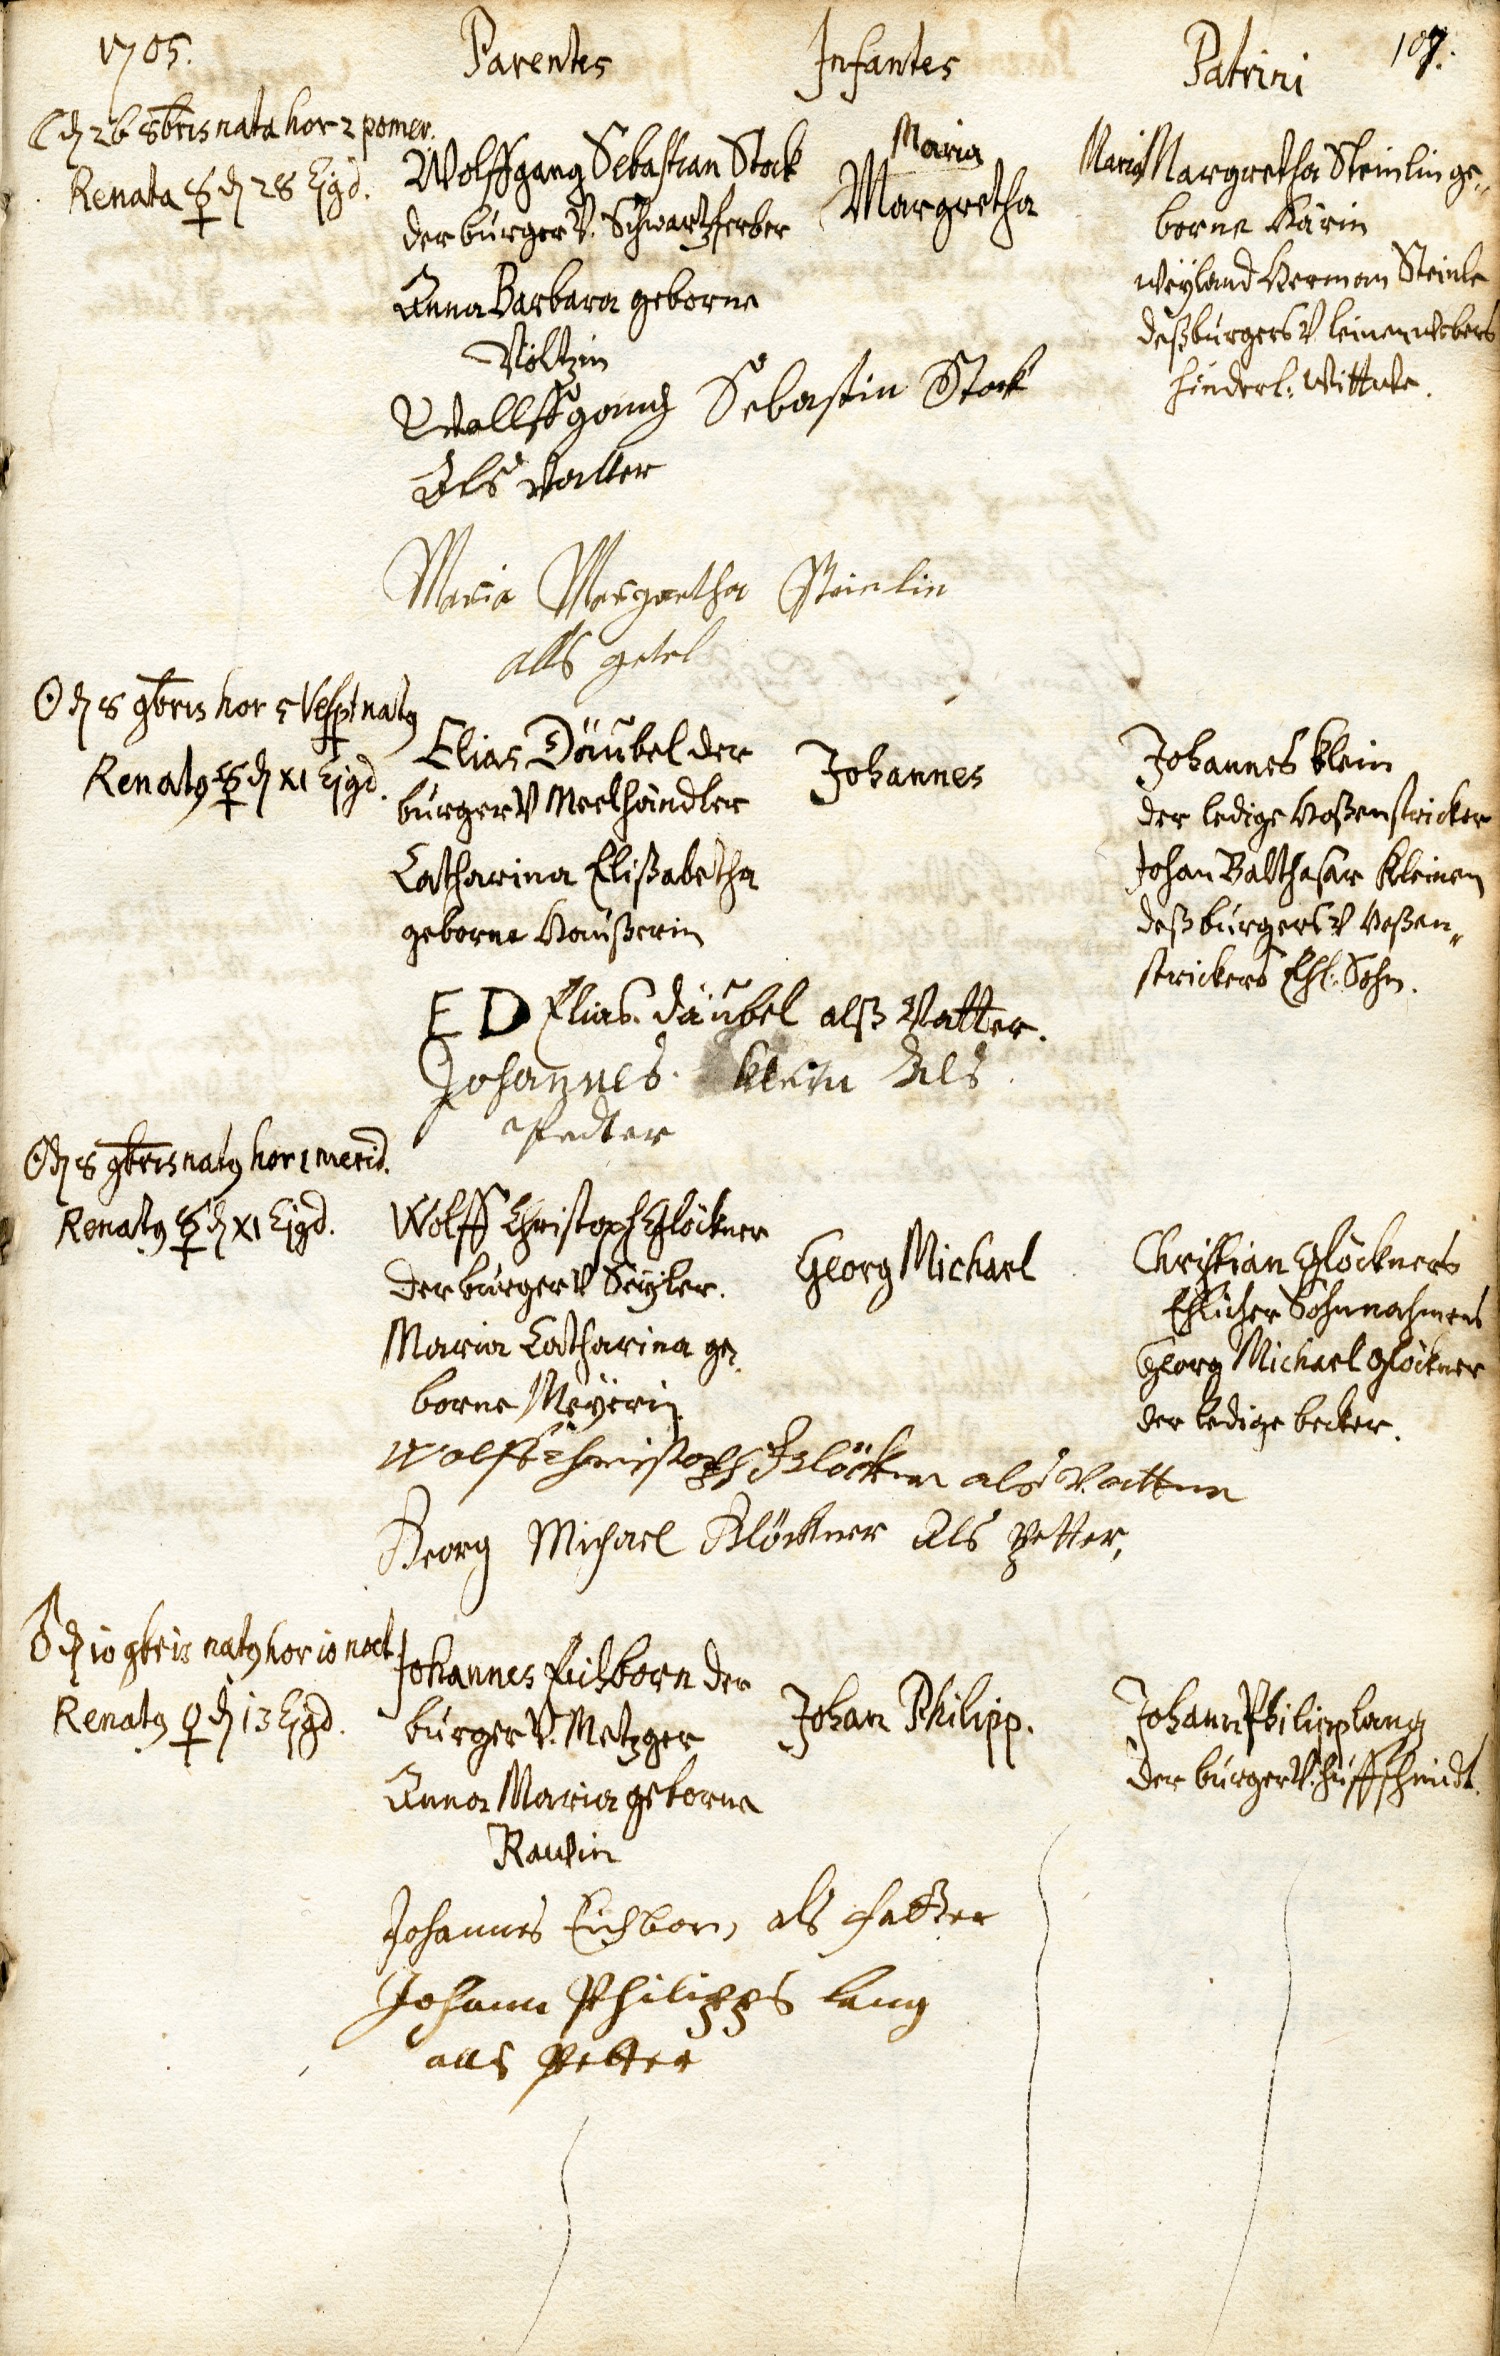 1705.
Parentes
Infantes
Patrini
107.
☾ d 26 8bris nata hor 2 pomer.
Renata ☿ d 28 Ejgd.
Wolffgang Sebastian Stock
der burger V. Schwartzferber
Anna Barbara geborne
Völtzin
Maria
Margretha
Maria Margretha Steinlin ge„
borne Kärin
weyland Herman Steinle
deß burgers V leinenwebers
hinderl: Wittwe.
Wollffgang Sebastin Stock
Als Vatter
Maria Margretha Steinlin
alls getel
☉ d 8 9bris hor 5 Vesp: natq
Renatq ☿ d XI Ejgd.
Elias Däubel der
burger V Meelhändler
Catharina Elißabetha
geborne Haußerin
Johannes
Johannes Klein
der ledige Hoßenstricker
Johan Balthasar Kleinen
deß burgers V Hoßen„
strickers Ehl: Sohn.
E D Elias Däubel alß Vatter.
Johannes Klein Als
Pedter
☉ d 8 9bris natq hor 1 merid.
Renatq ☿ d XI Ejgd.
Wolff Christoph Glöckner
der burger V Seyler.
Maria Catharina ge„
borne Meyerin
Georg Michael
Christian Glöckners
Ehlicher Sohn nahmens
Georg Michael Glöckner
der ledige becker.
Wolff Christoph Glöckner als Vatter
Georg Michael Klöckner Als petter,
♂ d 10 9bris natq hor 10 noct
Renatq ♀ d 13 Ejgd.
Johannes Eichborn der
burger V. Metzger
Anna Maria geborne
Rauvin
Johan Philipp.
Johann Philipp lang
der burger V. huffschmidt.
Johannes Eichborn als fatter
Johann Philipps lang
alls petter